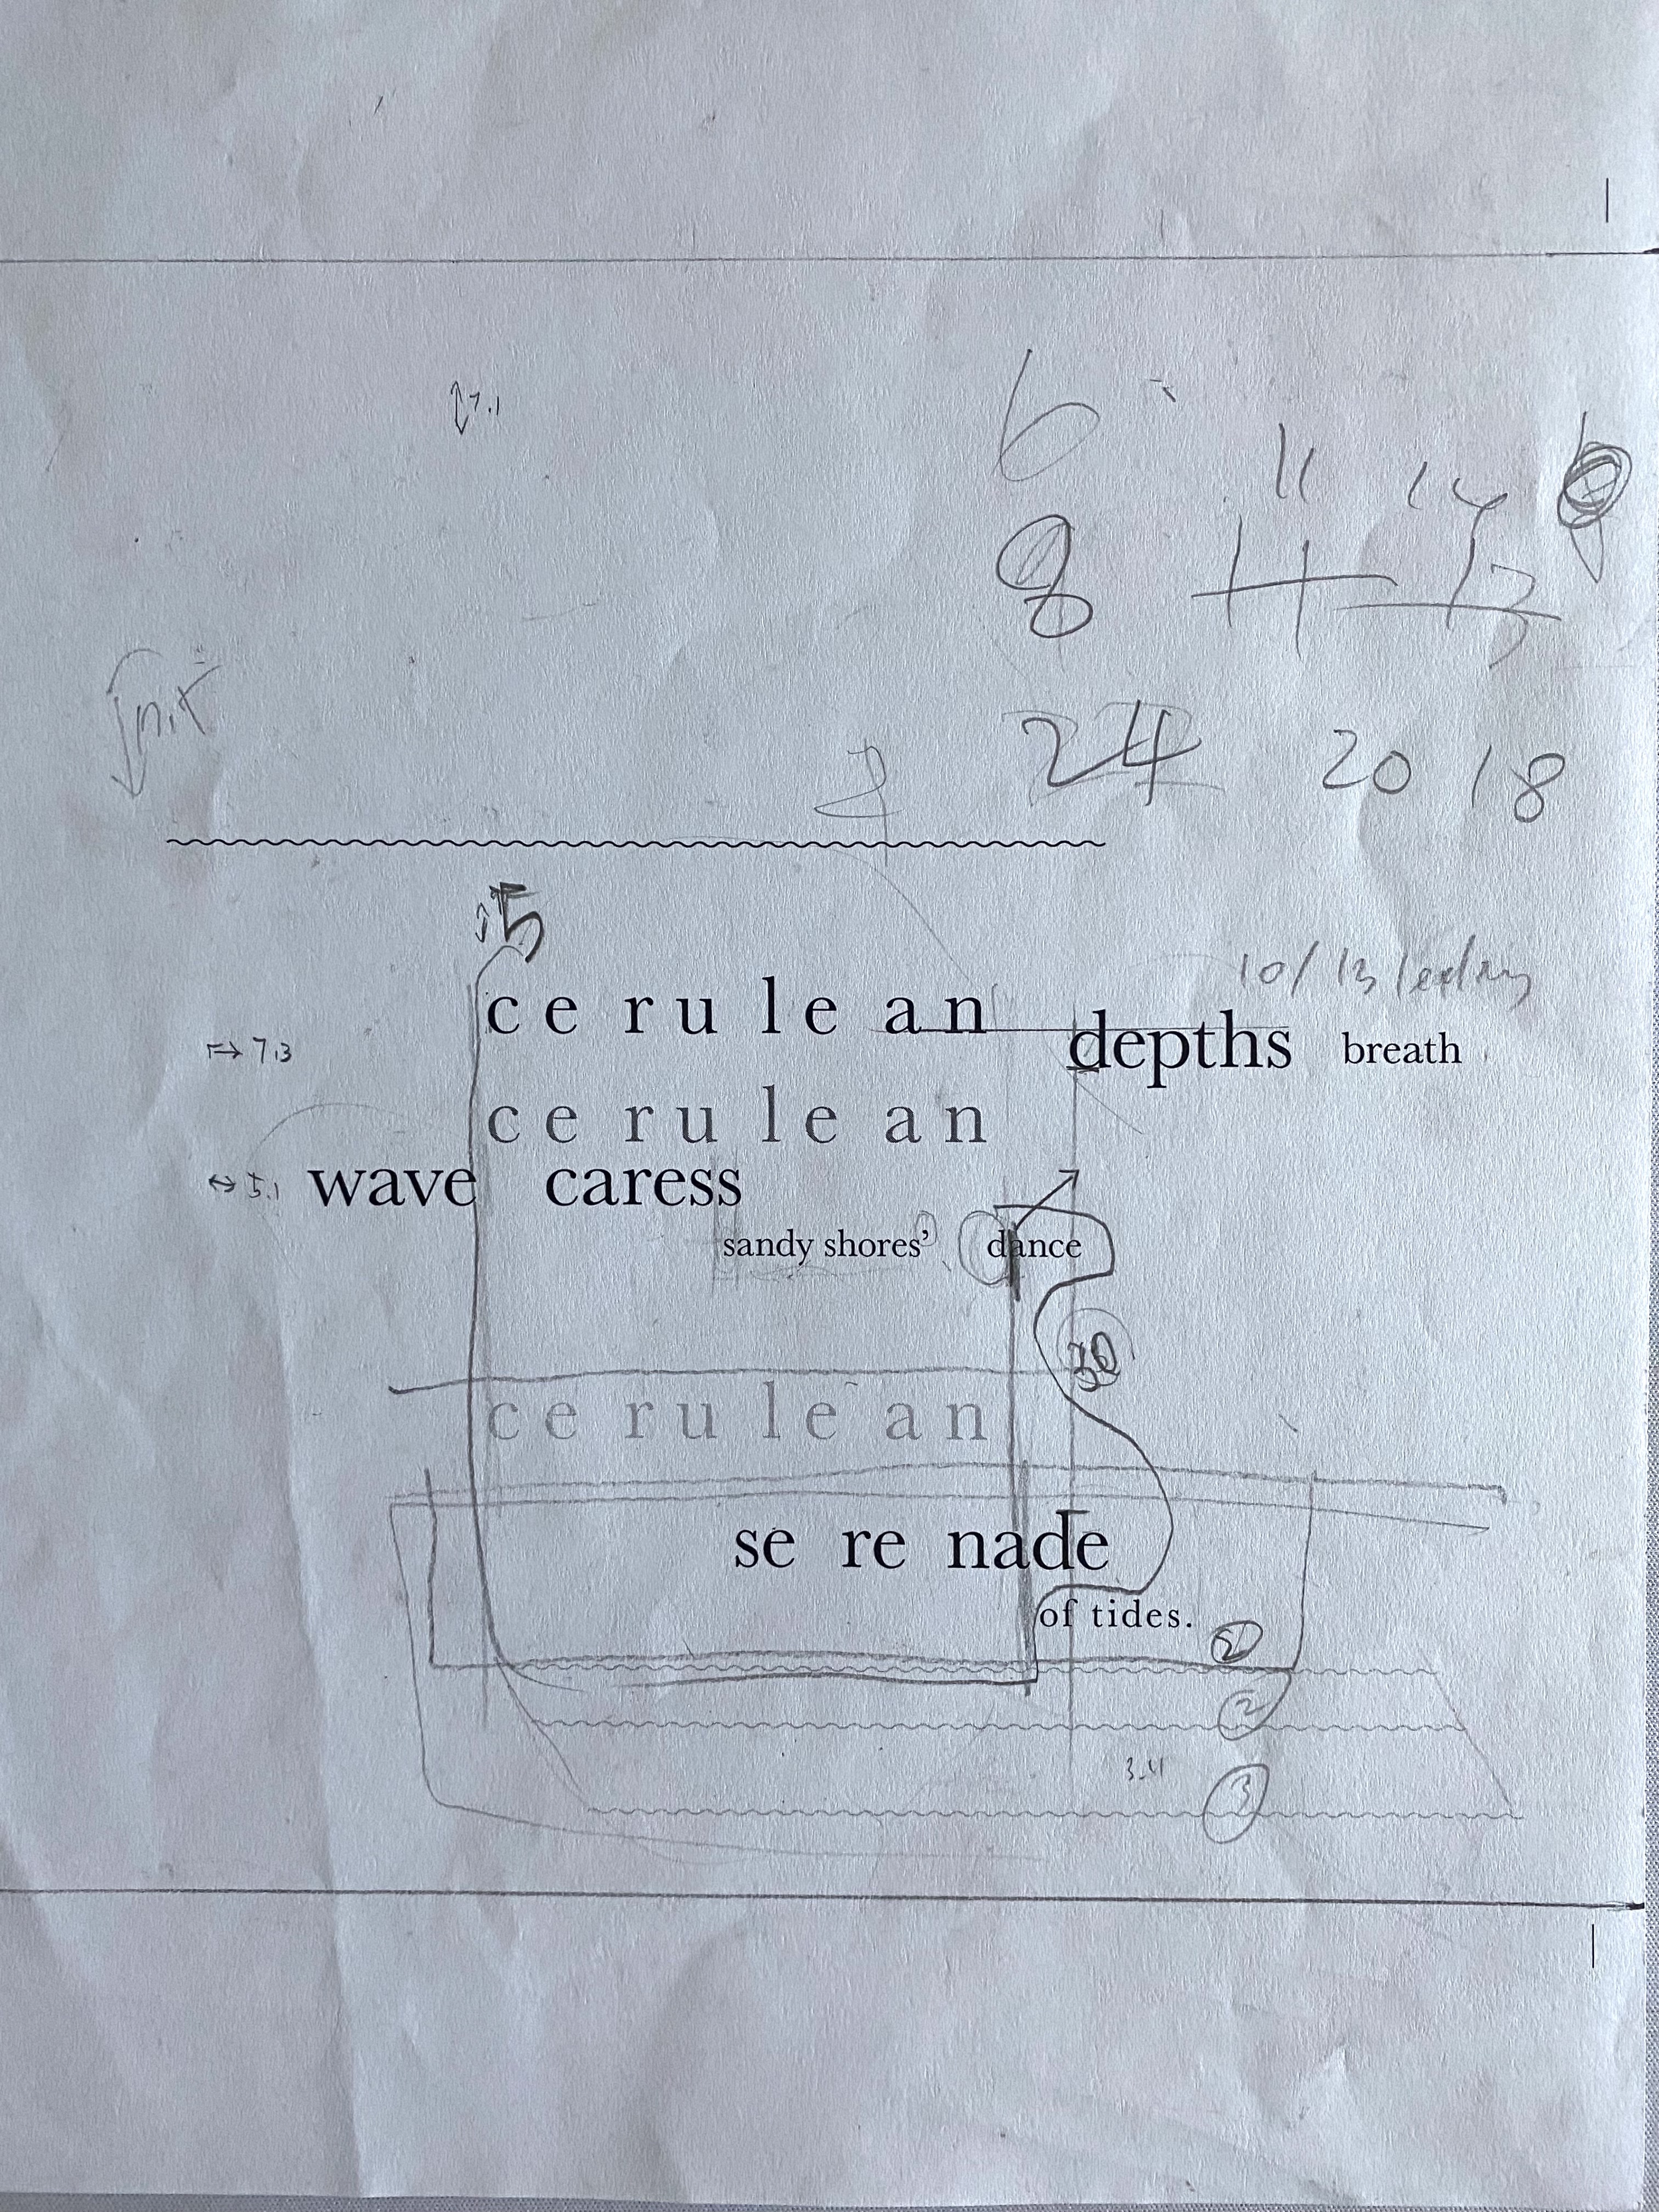 7.1
6
11 14
8 11 13
24 20 18
5
10/13 leading
c e r u l e a n depths breath
7.3
c e r u l e a n
5.1 wave caress
sandy shores’ dance
30
c e r u l e a n
se re nade
of tides.
2
3.4
3